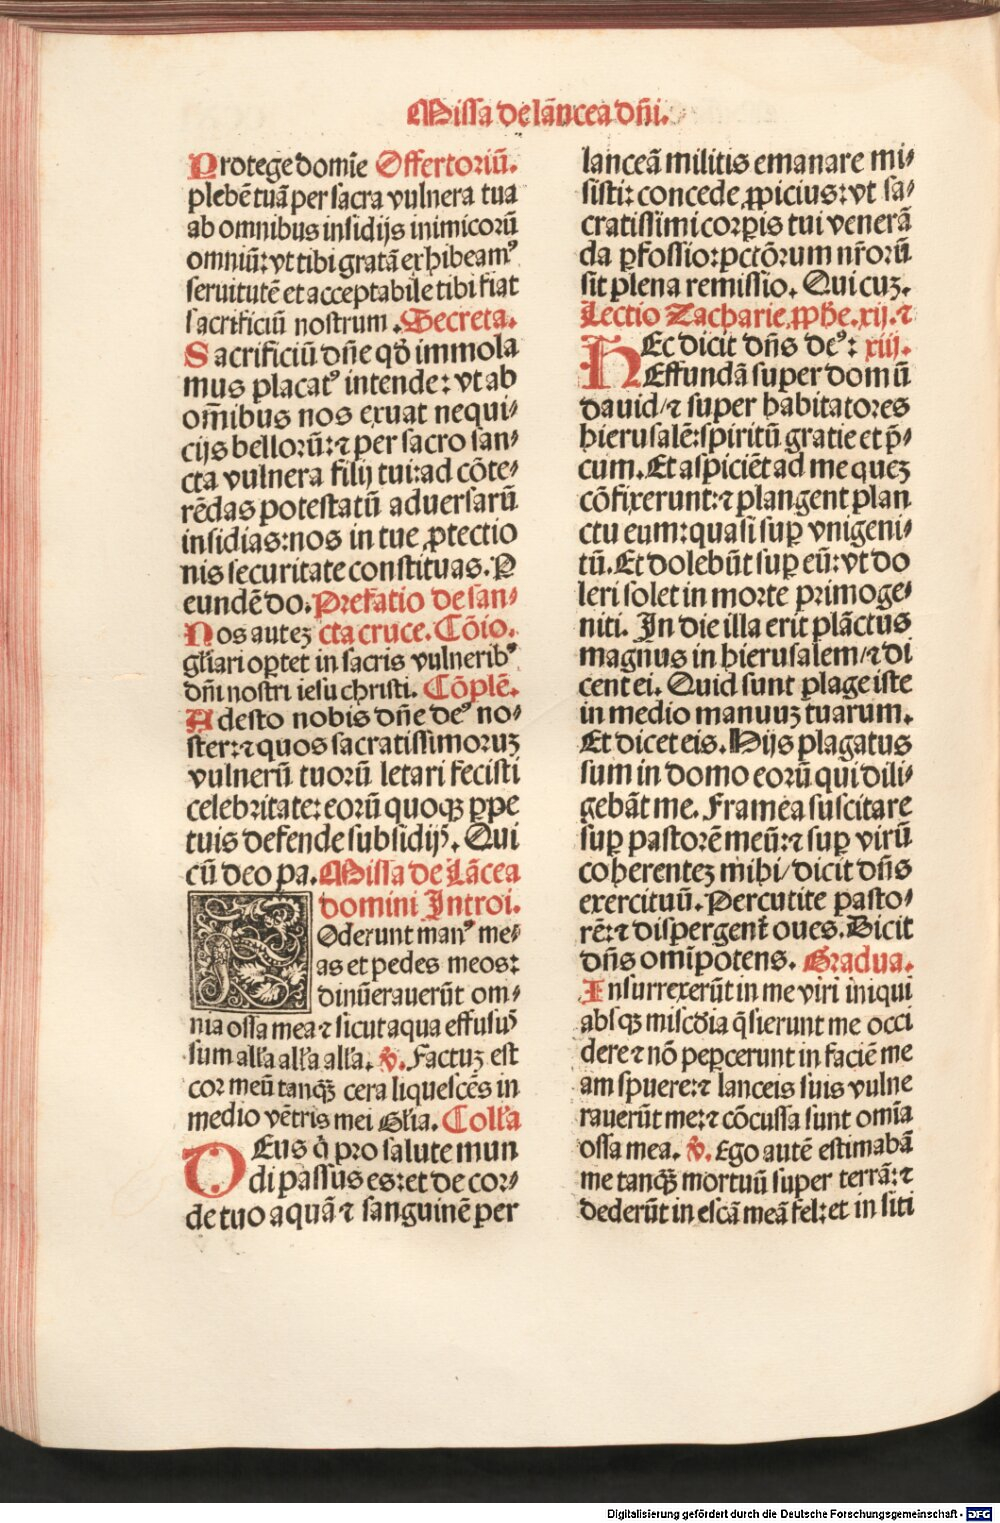 Missa de lācea dn̄i.
Protege domīe Offertoriū.
plebē tuā per sacra vulnera tua
ab omnibus insidijs inimicorū
omniū: vt tibi gratā exhibeamꝰ
seruitutē et acceptabile tibi fiat
sacrificiū nostrum. Secreta.
Sacrificiū dn̄e qd̄ immola
mus placatꝰ intende: vt ab
om̄ibus nos exuat nequi⸗
cijs bellorū: ⁊ per sacro san⸗
cta vulnera filij tui: ad cōte⸗
rēdas potestatū aduersarū
insidias: nos in tue ꝓtectio
nis securitate constituas. P
eundē do. Prefatio de san⸗
Nos autez cta cruce. Cōio.
gl̄iari oꝑtet in sacris vulneribꝰ
dn̄i nostri iesu christi. Cōplē.
Adesto nobis dn̄e deꝰ no⸗
ster: ⁊ quos sacratissimoruz
vulnerū tuorū letari fecisti
celebritate: eorū quoqꝫ ꝑpe
tuis defende subsidijs. Qui
cū deo pa. Missa de Lācea
domini Introi.
Foderunt manꝰ me⸗
as et pedes meos:
dinūerauerūt om⸗
nia ossa mea ⁊ sicut aqua effusuꝰ
sum all'a all'a all'a. ꝟ. Factuz est
cor meū tanqꝫ cera liquescēs in
medio vētris mei Gl'ia. Coll'a
DEus q̄ pro salute mun
di passus es: et de cor⸗
de tuo aquā ⁊ sanguinē per
lanceā militis emanare mi⸗
sisti: concede ꝓpicius: vt sa⸗
cratissimi corꝑis tui venerā
da ꝑfossio: pctōrum nr̄orū
sit plena remissio. Qui cuz.
Lectio Zacharie ꝓph̄e. xij. ⁊
HEc dicit dn̄s deꝰ: xiij.
Effundā super domū
dauid/ ⁊ super habitatores
hierusalē: spiritū gratie et p̄⸗
cum. Et aspiciēt ad me quez
cōfixerunt: ⁊ plangent plan
ctu eum: quasi suꝑ vnigeni⸗
tū. Et dolebūt suꝑ eū: vt do
leri solet in morte primoge⸗
niti. In die illa erit plāctus
magnus in hierusalem/ ⁊ di
cent ei. Quid sunt plage iste
in medio manuuz tuarum.
Et dicet eis. Hijs plagatus
sum in domo eorū qui dili⸗
gebāt me. Framea suscitare
suꝑ pastorē meū: ⁊ suꝑ virū
coherentez mihi/ dicit dn̄s
exercituū. Percutite pasto⸗
rē: ⁊ dispergent̄ oues. Dicit
dn̄s om̄ipotens. Gradua.
Insurrexerūt in me viri iniqui
absqꝫ miscd̄ia q̄sierunt me occi
dere ⁊ nō peꝑcerunt in faciē me
am spuere: ⁊ lanceis suis vulne
rauerūt me: ⁊ cōcussa sunt om̄ia
ossa mea. ꝟ. Ego autē estimabā
me tanqꝫ mortuū super terrā: ⁊
dederūt in escā meā fel: et in siti
Digitalisierung gefördert durch die Deutsche Forschungsgemeinschaft - DFG